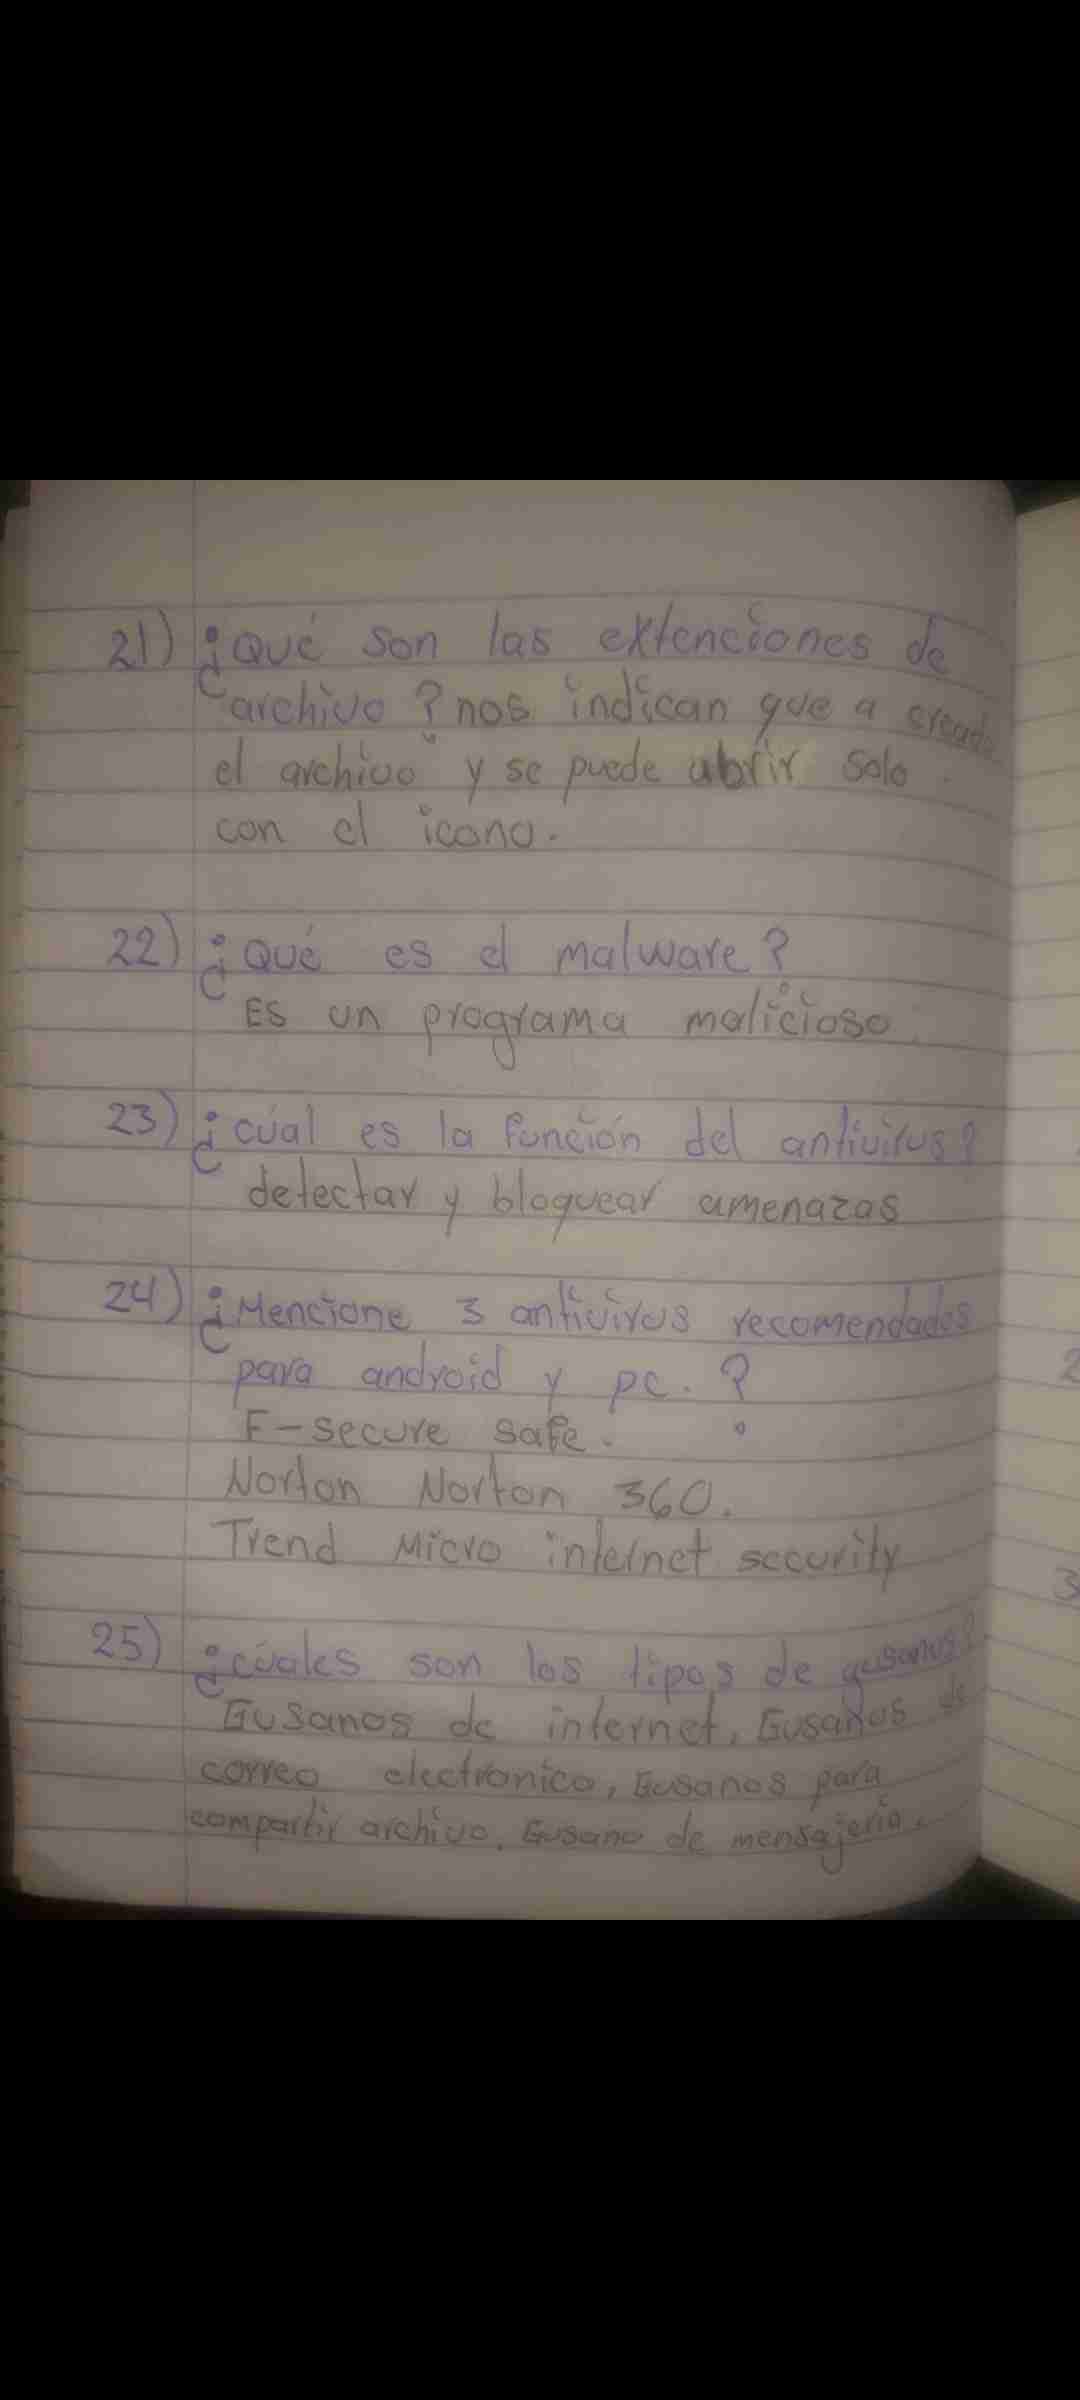 21) ¿Qué son las extenciones de
archivo? nos indican que a creado
el archivo y se puede abrir solo
con el icono.
22) ¿Qué es el malware?
Es un programa malicioso.
23) ¿cúal es la función del antivirus?
detectar y bloquear amenazas
24) ¿Mencione 3 antivirus recomendados
para android y pc.?
F-secure safe.
Norton Norton 360.
Trend Micro internet security
25) ¿cúales son los tipos de gusanos?
Gusanos de internet, Gusanos de
correo electronico, Gusanos para
compartir archivo, Gusano de mensajeria.
2
3